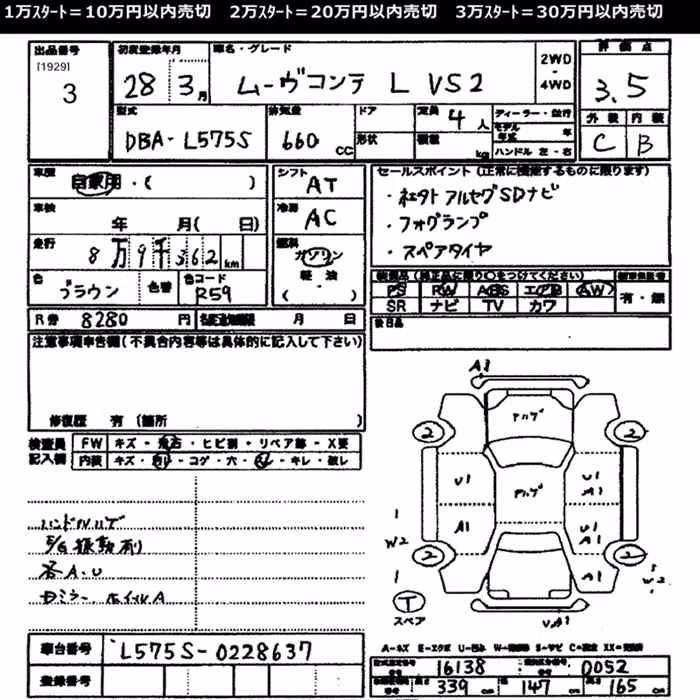 1万ｽﾀｰﾄ＝10万円以内売切　2万ｽﾀｰﾄ＝20万円以内売切　3万ｽﾀｰﾄ＝30万円以内売切
出品番号 初度登録年月 車名・グレード 2WD・4WD 評価点
[1929]
3 28 3月 ムーヴコンテ L VS2 3.5
外装 内装
C B
型式 排気量 ドア 定員 4人
DBA-L575S 660 CC 形状 積載 kg
ディーラー・並行
モデル年式 年
ハンドル 左・右
車歴 自家用・( )
シフト AT
車検 年 月( 日)
冷房 AC
走行 8万9千362km
燃料 ガソリン 軽・油 ( )
色 ブラウン 色番 色コード R59
セールスポイント (正常に機能するものに限ります)
・社外 アルセグSDナビ
・フォグランプ
・スペアタイヤ
装備品 (純正品に限り○をつけてください)
PS RW ABS エアB AW
SR ナビ TV カワ
有・無
後日品
R券 8280 円 月 日
注意事項申告欄 (不具合内容等は具体的に記入して下さい)
修復歴 有 (箇所 )
検査員 FW キズ・飛石・ヒビ割・リペア跡・X要
記入欄 内装 キズ・コゲ・穴・キレ・破レ
ハンドルハゲ
E/G振動刷
各A.U
ミラー、ホイルA
A1
アルプ
2 2
U1 アルプ U1
A1
A1 U1
A1
1
W2
2 2
1 A1
W2
T
スペア
A-キズ E-エクボ U-凹ミ S-サビ
車台番号 L575S-0228637
登録番号
型式指定番号 16138 類別区分番号 0052
長さ 339cm 幅 147cm 高さ 165cm